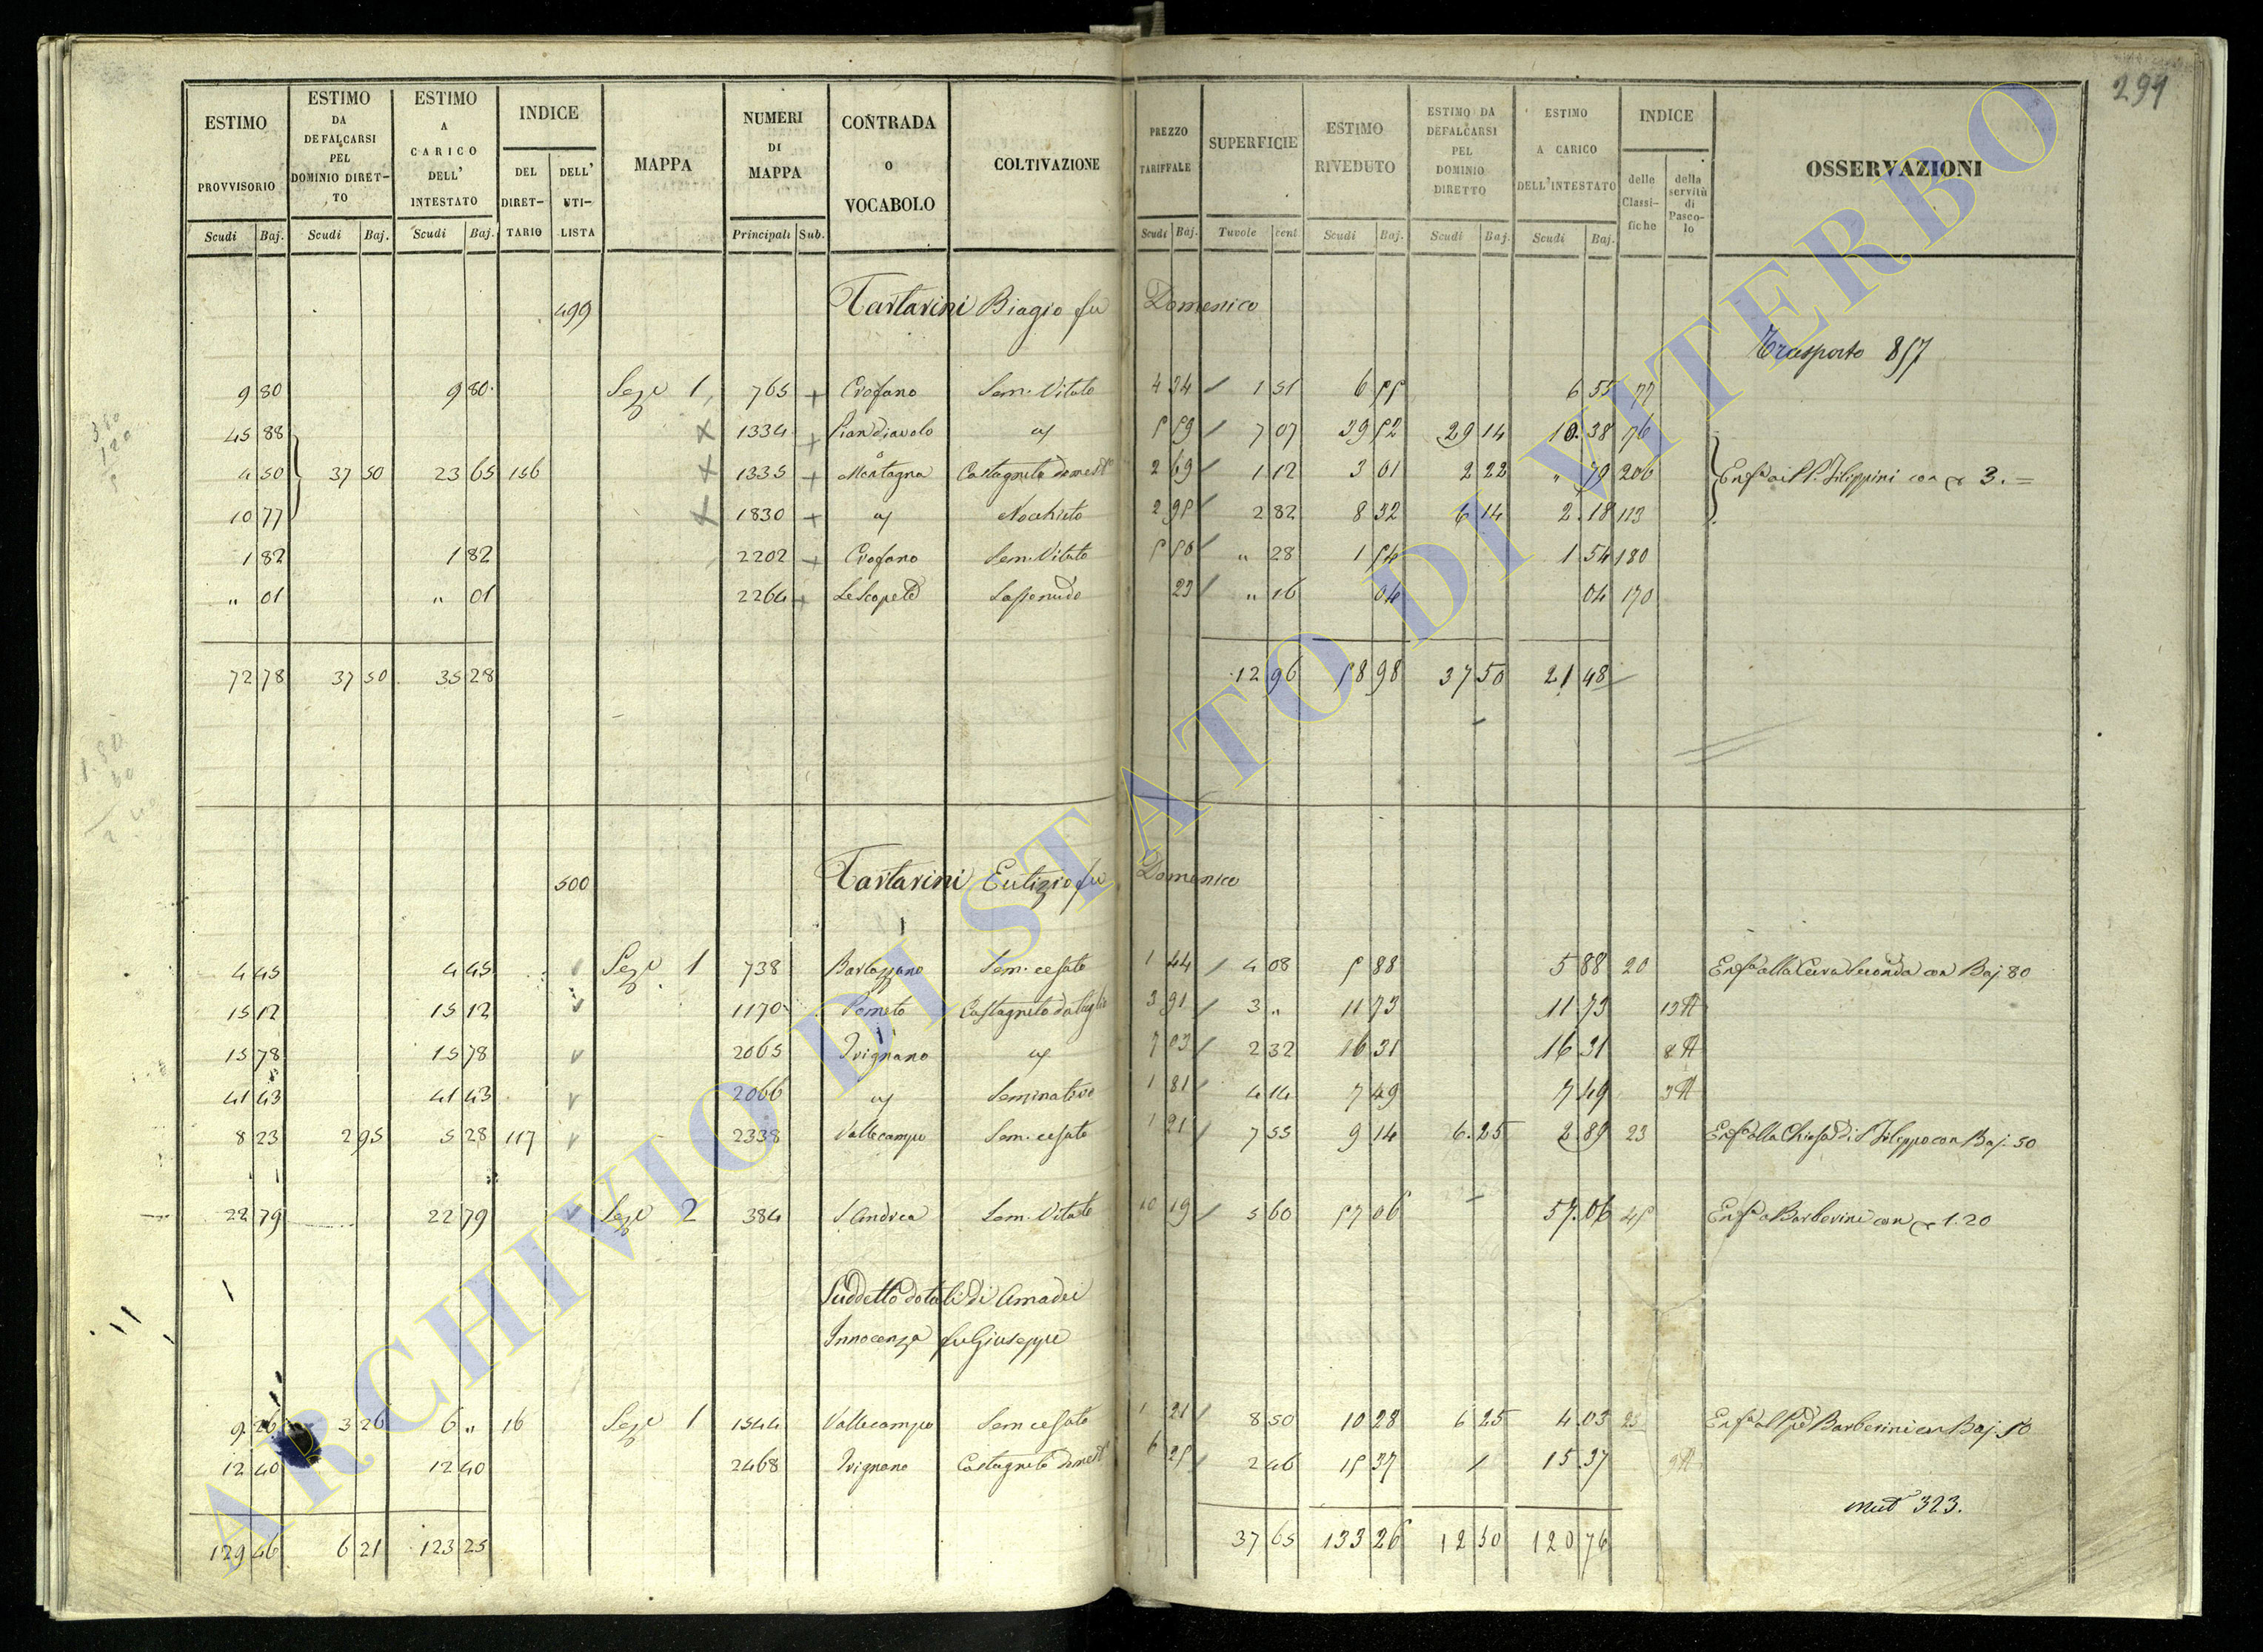 291
ESTIMO PROVVISORIO Scudi Baj. ESTIMO DA DEFALCARSI PEL DOMINIO DIRETTO Scudi Baj. ESTIMO A CARICO DELL' INTESTATO Scudi Baj. INDICE DEL DIRETTARIO DELL' UTILISTA MAPPA NUMERI DI MAPPA Principali Sub. CONTRADA o VOCABOLO COLTIVAZIONE PREZZO TARIFFALE Scudi Baj. SUPERFICIE Tavole cent. ESTIMO RIVEDUTO Scudi Baj. ESTIMO DA DEFALCARSI PEL DOMINIO DIRETTO Scudi Baj. ESTIMO A CARICO DELL'INTESTATO Scudi Baj. INDICE delle Classifiche della servitù di Pascolo OSSERVAZIONI
499 Tartarini Biagio fu Domenico
Trasporto 857
9 80 9 80 Seze 1 765 + Crofano Sem. Vitato 4 34 / 1 51 6 55 6 55 77
45 88 x 1334 + Piandiavolo id 5 59 / 7 07 39 52 29 14 10.38 76
4 50 37 50 23 65 156 x 1335 + Montagna Castagneto domest 2 69 / 1 12 3 01 2 22 " 79 206 Enfa ai PP. Filippini con 3. =
10 77 x 1830 + id Nocchieto 2 95 / 2 82 8 32 6 14 2.18 113
1 82 1 82 2202 + Crofano Sem. Vitato 5 50 / " 28 1 54 1 54 180
" 01 " 01 2264 + Le Scopete Sassonudo 23 / " 16 04 04 170
72 78 37 50 35 28 12 96 58 98 37 50 21 48
500 Tartarini Eutizio fu Domenico
4 45 4 45 Seze 1 738 Bartazzano Sem. cesato 1 44 / 4 08 5 88 5 88 20 Enfa alla Cura Seconda con Baj 80
15 12 15 12 1170 Pometo Castagneto da taglio 3 91 / 3 " 11 73 11.73 13 A
15 78 15 78 2065 Ivignano id 7 03 / 2 32 16 31 16 31 8 A
41 43 41 43 2066 id Seminativo 1 81 / 4 14 7 49 7 49 3 A
8 23 2 95 5 28 117 2338 Vallecampo Sem. cesato 1 21 / 7 55 9 14 6.25 2.89 23 Enfa alla Chiesa di S Filippo con Baj. 50
22 79 22 79 Seze 2 384 S. Andrea Sem. Vitato 10 19 / 5 60 57 06 57.06 45 Enfa a Barberini con 1.20
Suddetto dotali di Amadei
Innocenza fu Giuseppe
9 26 3 26 6 " 16 Seze 1 1544 Vallecampo Sem cesato 1 21 / 8 50 10 28 6 25 4 03 23 Enfa al Barberini con Baj. 50
12 40 12 40 2468 Ivignano Castagneto domest 6 25 / 2 46 15 37 / 15.37 9 A
mut 323.
129 46 6 21 123 25 37 65 133 26 12 50 120 76
ARCHIVIO DI STATO DI VITERBO